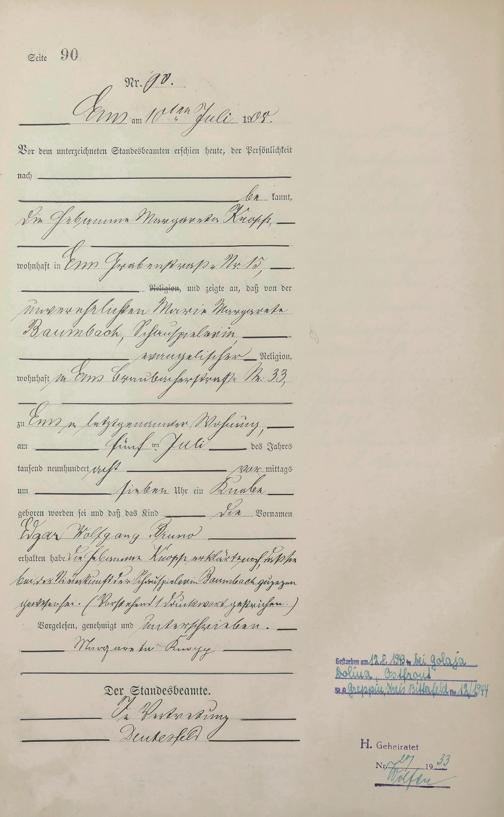 Seite 90
Nr. 90.
Ems am 10ten Juli 1908.
Vor dem unterzeichneten Standesbeamten erschien heute, der Persönlichkeit
nach
be kannt,
die Hebamme Margareta Knopp,
wohnhaft in Ems Grabenstraße Nr. 15,
Religion, und zeigte an, daß von der
unverehelichten Marie Margarete
Baumbach, Schauspielerin,
evangelischer Religion,
wohnhaft in Ems Braubacherstraße Nr. 33,
zu Ems in letztgenannter Wohnung,
am fünf ten Juli des Jahres
tausend neunhundert acht vor mittags
um sieben Uhr ein Knabe
geboren worden sei und daß das Kind die Vornamen
Edgar Wolfgang Bruno
erhalten habe. Die Hebamme Knopp erklärte noch, daß sie
bei der Niederkunft der Schauspielerin Baumbach zugegen
gewesen sei. (Vorstehend 1 Druckwort gestrichen.)
Vorgelesen, genehmigt und unterschrieben.
Margareta Knopp
Der Standesbeamte.
In Vertretung
Gestorben am 12.2.1943 in bei Golaja
Dolina, Ostfront
St.A. Greppin, Kreis Bitterfeld Nr. 12/1944
H. Geheiratet
Nr. 27 1933
Wolfen